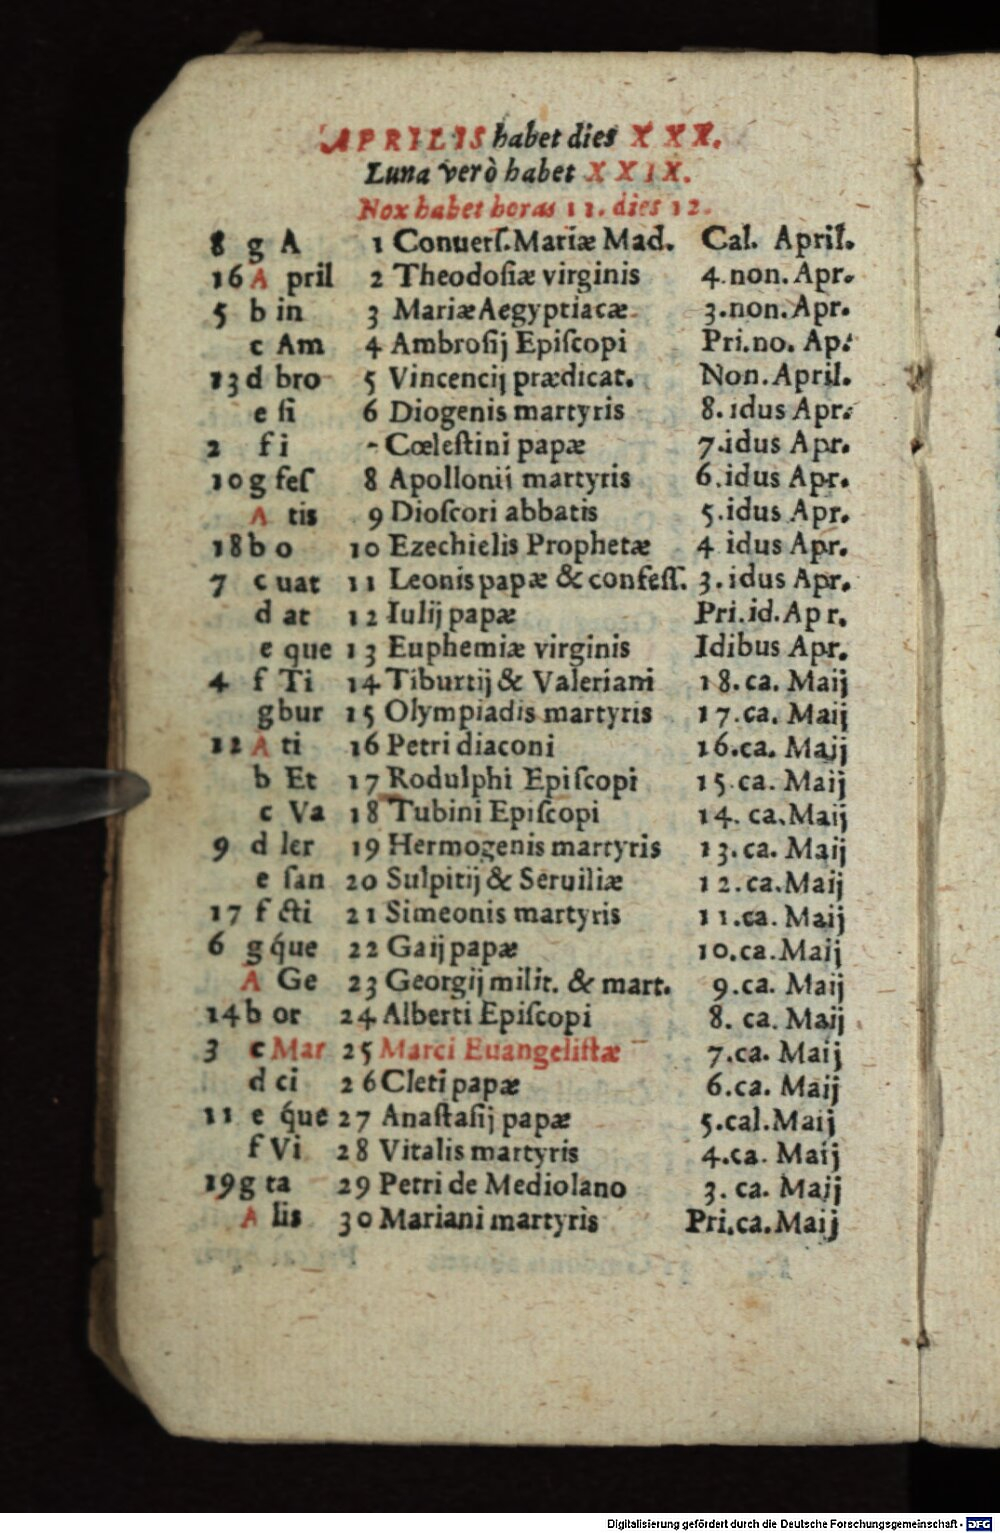 APRILIS habet dies XXX.
Luna verò habet XXIX.
Nox habet horas 11. dies 12.
8 g A 1 Conuerſ. Mariæ Mad. Cal. April.
16 A pril 2 Theodoſiæ virginis 4. non. Apr.
5 b in 3 Mariæ Aegyptiacæ 3. non. Apr.
c Am 4 Ambroſij Epiſcopi Pri. no. Ap.
13 d bro 5 Vincencij prædicat. Non. April.
e ſi 6 Diogenis martyris 8. idus Apr.
2 f i - Cœleſtini papæ 7. idus Apr.
10 g feſ 8 Apollonii martyris 6. idus Apr.
A tis 9 Dioſcori abbatis 5. idus Apr.
18 b o 10 Ezechielis Prophetæ 4 idus Apr.
7 c uat 11 Leonis papæ & confeſſ. 3. idus Apr.
d at 12 Iulij papæ Pri. id. Apr.
e que 13 Euphemiæ virginis Idibus Apr.
4 f Ti 14 Tiburtij & Valeriani 18. ca. Maij
g bur 15 Olympiadis martyris 17. ca. Maij
12 A ti 16 Petri diaconi 16. ca. Maij
b Et 17 Rodulphi Epiſcopi 15. ca. Maij
c Va 18 Tubini Epiſcopi 14. ca. Maij
9 d ler 19 Hermogenis martyris 13. ca. Maij
e ſan 20 Sulpitij & Seruiliæ 12. ca. Maij
17 f cti 21 Simeonis martyris 11. ca. Maij
6 g q́ue 22 Gaij papæ 10. ca. Maij
A Ge 23 Georgij milit. & mart. 9. ca. Maij
14 b or 24 Alberti Epiſcopi 8. ca. Maij
3 c Mar 25 Marci Euangeliſtæ 7. ca. Maij
d ci 26 Cleti papæ 6. ca. Maij
11 e q́ue 27 Anaſtaſij papæ 5. cal. Maij
f Vi 28 Vitalis martyris 4. ca. Maij
19 g ta 29 Petri de Mediolano 3. ca. Maij
A lis 30 Mariani martyris Pri. ca. Maij
Digitalisierung gefördert durch die Deutsche Forschungsgemeinschaft - DFG